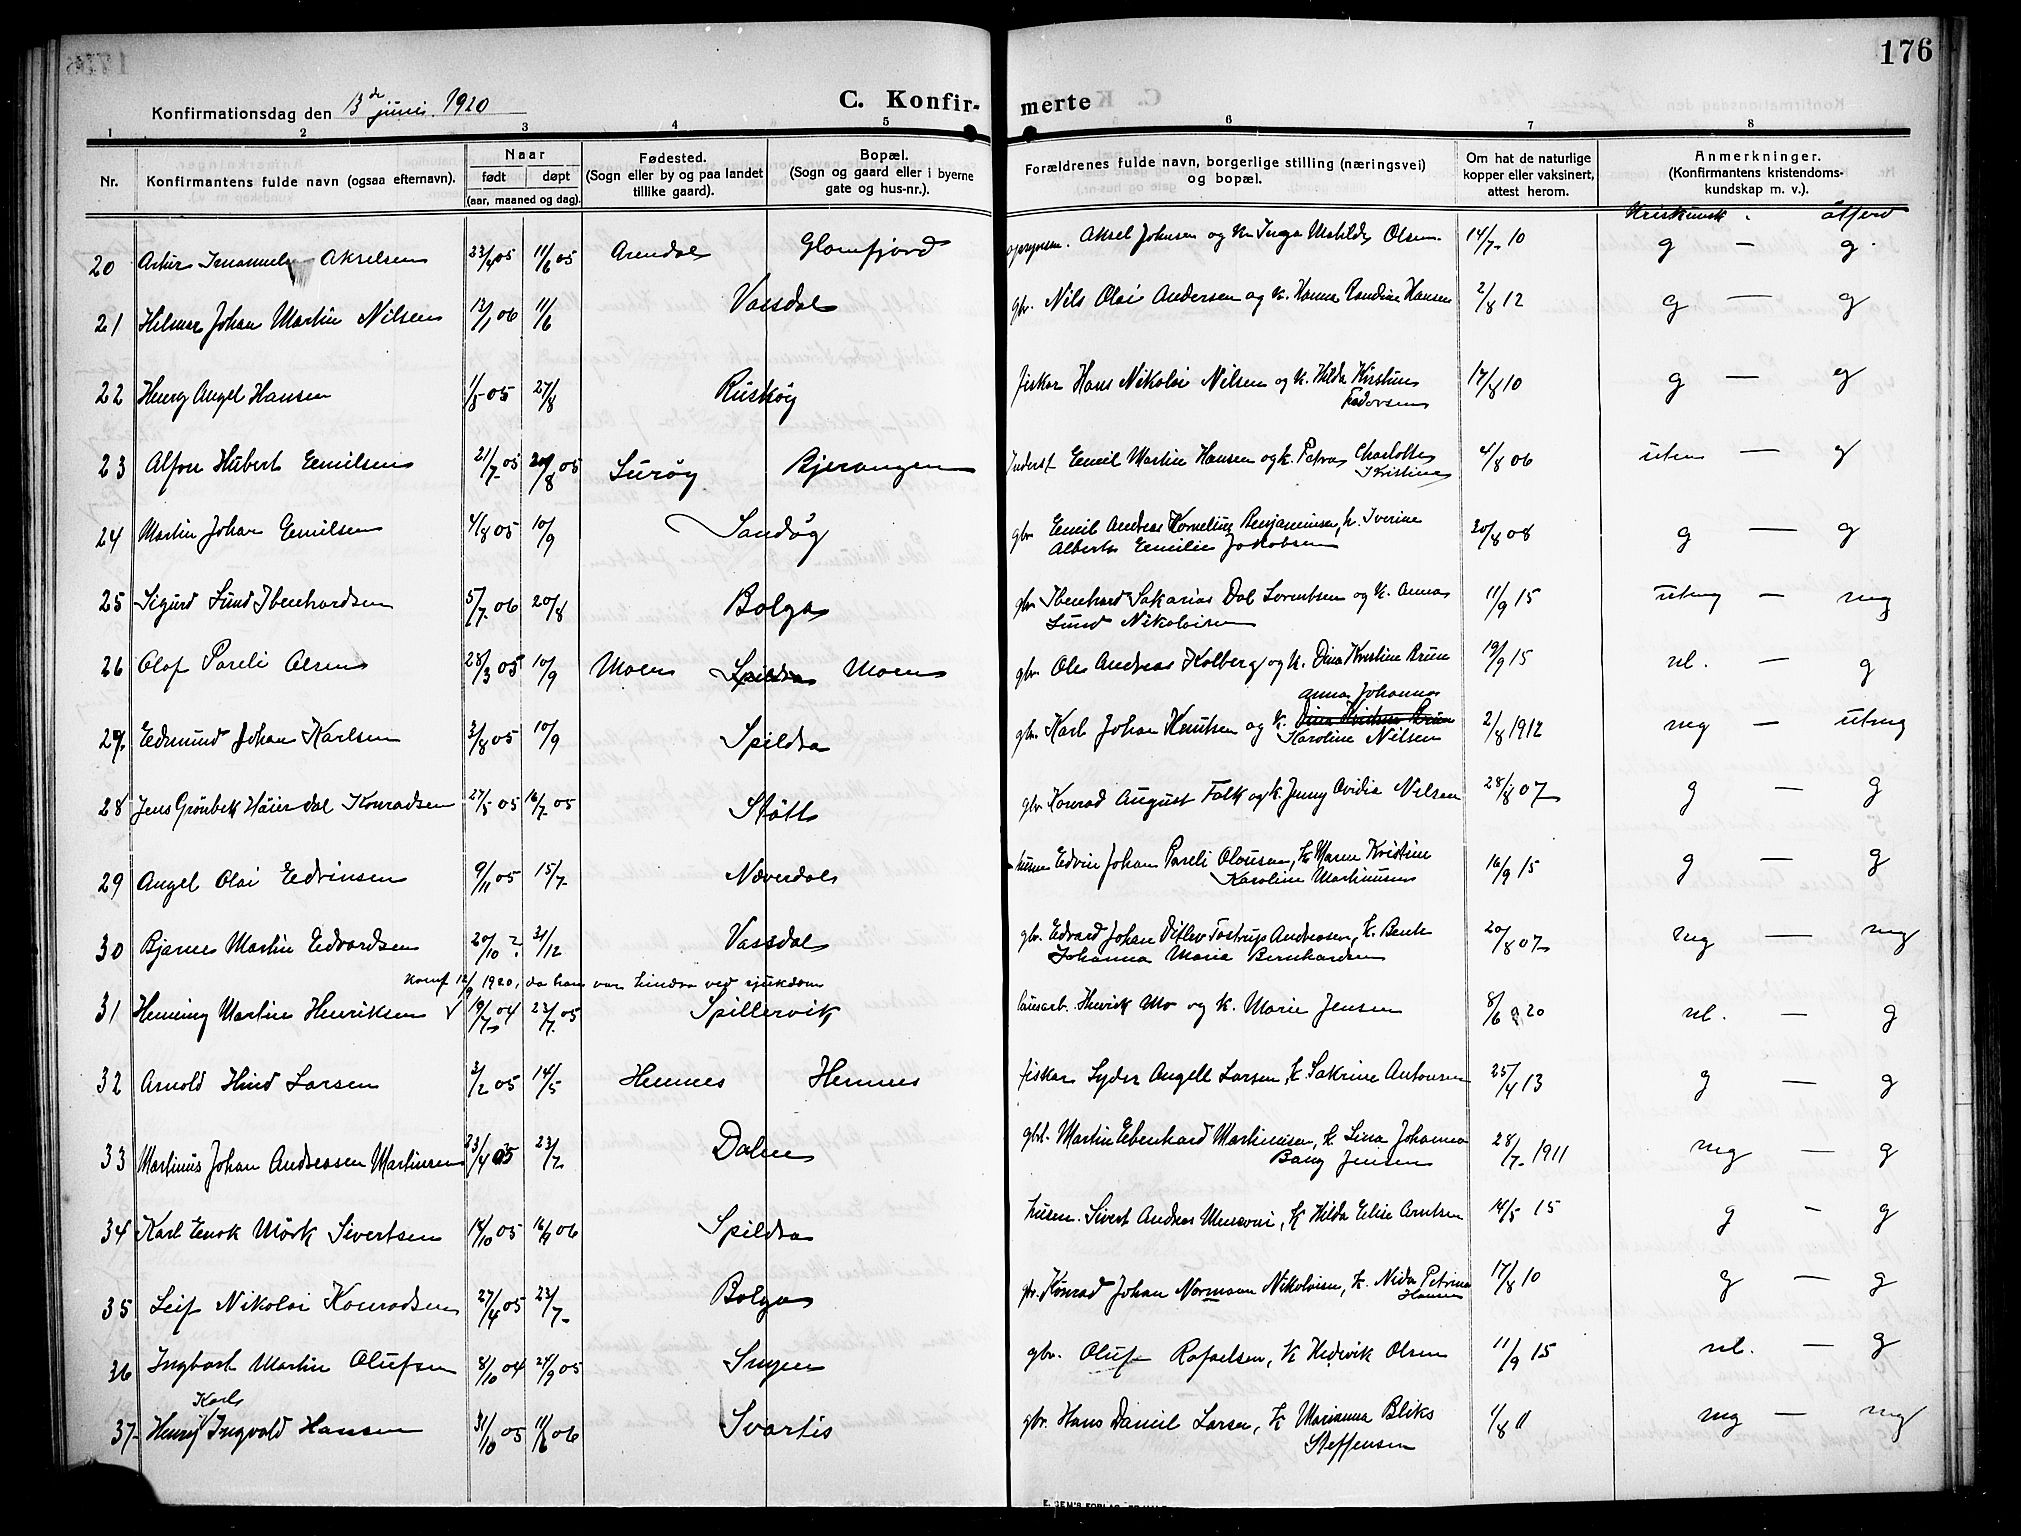 176
Konfirmationsdag den 13de juni 1920
C. Konfir- merte
1 2 3 4 5 6 7 8
Nr. Konfirmantens fulde navn (ogsaa efternavn). Naar født døpt (aar, maaned og dag). Fødested. (Sogn eller by og paa landet tillike gaard). Bopæl. (Sogn og gaard eller i byerne gate og hus-nr.). Forældrenes fulde navn, borgerlige stilling (næringsvei) og bopæl. Om hat de naturlige kopper eller vaksinert, attest herom. Anmerkninger. (Konfirmantens kristendoms-kundskap m. v.).
Kriskunsk. åtferd
20 Artur Imanuel Akselsen 23/4 05 11/6 05 Arendal Glomfjord Aksel Johnsen og k. Inga Matilde Olsen 14/7 10 g — g.
21 Hilmar Johan Martin Nilsen 12/1 06 11/6 Vassdal gbr. Nils Olai Andersen og k. Hanna Randine Hansen 2/8 12 g — g
22 Henry Angel Hansen 1/5 05 27/8 Rusköy fiskar Hans Nikolai Nilsen og k. Hilda Kirstine Fedorsen 17/8 10 g — g
23 Alfon Hubert Emilsen 21/7 05 20/8 05 Suröy Bjerangen Inderst Emil Martin Hansen og k. Petra Charlotte Kristine 4/8 06 uten — g
24 Martin Johan Emilsen 4/8 05 10/9 Sandöy gbr. Emil Andreas Kornelius Benjaminsen, k. Iverine Alberta Emilie Jakobsen 20/8 08 g — g
25 Sigurd Lund Ibenhardsen 5/7 06 20/8 Bolga gbr. Ibenhard Sakarias Dal Lorentsen og k. Anna Lund Nikolaisen 11/9 15 utmg — mg
26 Olaf Pareli Olsen 28/3 05 10/9 Moen Spildra Moen gbr. Ole Andreas Kolberg og k. Dina Kristine Brun 19/9 15 nl. — g
27. Edmund Johan Karlsen 3/8 05 10/9 Spildra gbr. Karl Johan Knutsen og k. Dina Kristine Brun Anna Johanna Karoline Nilsen 2/8 1912 mg — utmg
28 Jens Grönbek Høierdal Konradsen 27/5 05 16/7 05 Stött gbr. Konrad August Falk og k. Jenny Ovidia Nilsen 28/8 07 g — g
29 Angel Olai Edvinsen 9/11 05 15/7 Næverdal husm Edvin Johan Pareli Olausen, k. Maren Kristine Karoline Martinusen 16/9 15 g — g
30 Bjarne Martin Edvardsen 20/10 ? 31/12 Vassdal gbr. Edvard Johan Ditlev Tostrup Andreasen, k. Berit Johanna Maria Bernhardsen 20/8 07 mg — mg
Konf 12/9 1920, da han var hindra ved sjukdom
31 Henning Martin Henriksen √ 19/7 04 23/7 05 Spillervik lausarb. Henrik Mo og k. Marie Jensen 8/6 20 nl. — g
32 Arnold Hind Larsen 3/2 05 14/5 Hemnes Hemnes fiskar Lyder Angell Larsen, k Sakrine Antonsen 25/4 13 g — g
33 Martinus Johan Andreassen Martinsen 23/4 05 23/7 Dalen gbr. Martin Ebenhard Martinusen, k Lina Johanna Bang Jensen 28/7 1911 mg — g
34 Karl Enok Mörk Sivertsen 14/10 05 16/4 06 Spildra husm. Sivert Andreas Monsøni, k Hilda Elise Arntsen 14/5 15 g — g
35 Leif Nikolai Konradsen 27/4 05 23/7 Bolga gbr. Konrad Johan Normann Nikolaisen, k. Nida Petrina Hansen 17/8 10 g — g
36 Ingbart Martin Olufsen 8/10 04 24/9 05 Engen gbr. Oluf Rafaelsen, k Hedevik Olsen 11/9 15 nl. — g
37. Henry Karl Ingvald Hansen 31/10 05 11/6 06 Svartis gbr. Hans Daniel Larsen, k Marianna Bliks Steffensen 1/8 11 mg — mg